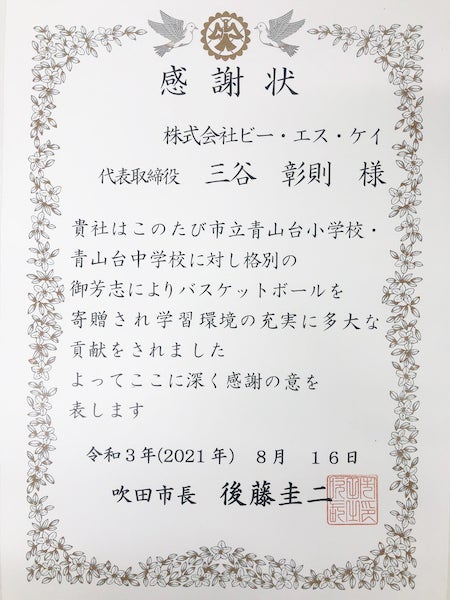 感謝状
株式会社ビー・エス・ケイ
代表取締役 三谷 彰則 様
貴社はこのたび市立青山台小学校・
青山台中学校に対し格別の
御芳志によりバスケットボールを
寄贈され学習環境の充実に多大な
貢献をされました
よってここに深く感謝の意を
表します
令和3年(2021年) 8月 16日
吹田市長 後藤圭二